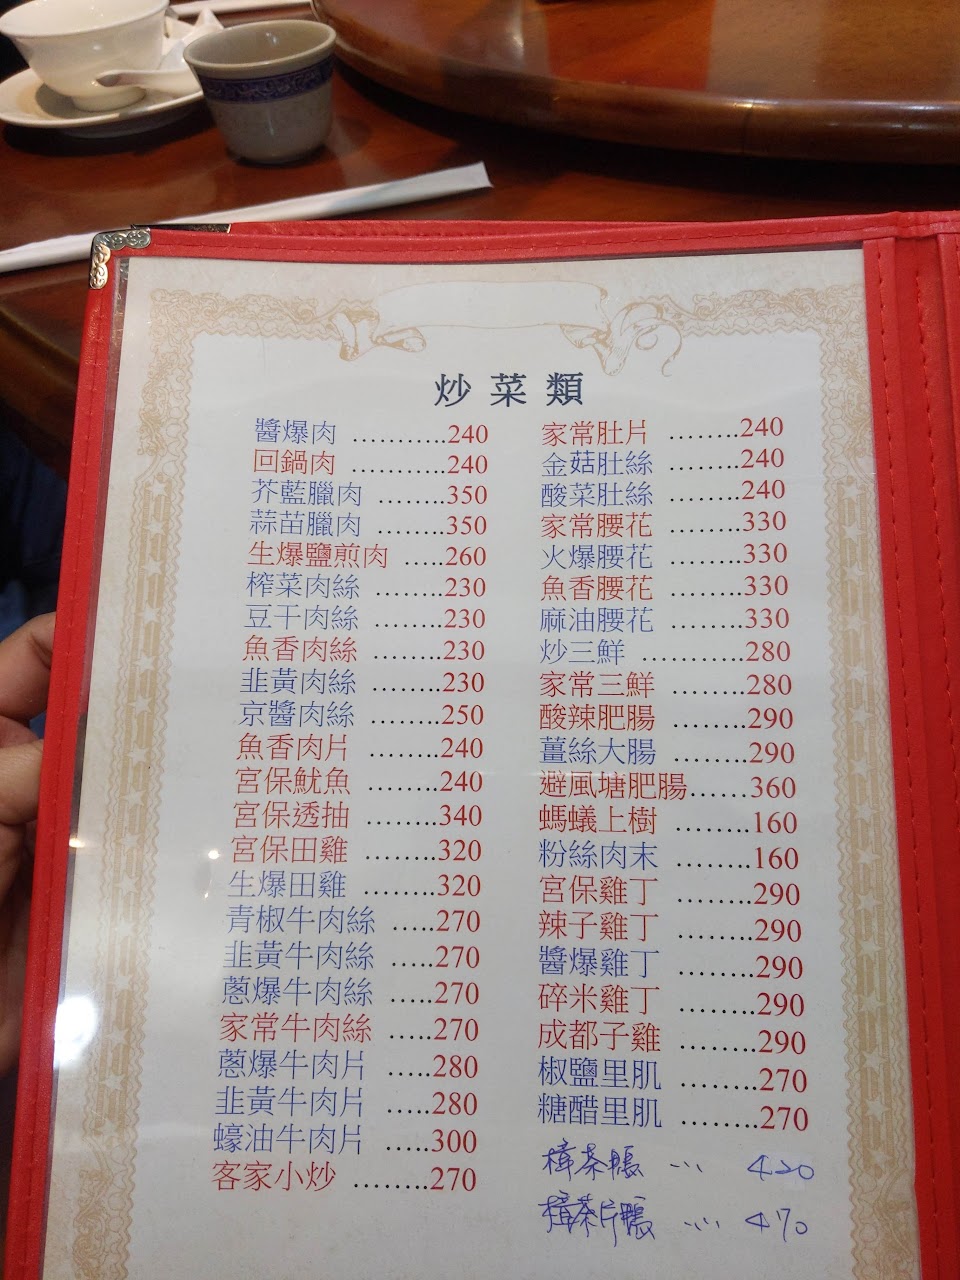 炒菜類
醬爆肉 ...........240
回鍋肉 ...........240
芥藍臘肉 ........350
蒜苗臘肉 ........350
生爆鹽煎肉 .....260
榨菜肉絲 ........230
豆干肉絲 ........230
魚香肉絲 ........230
韭黃肉絲 ........230
京醬肉絲 ........250
魚香肉片 ........240
宮保魷魚 ........240
宮保透抽 ........340
宮保田雞 ........320
生爆田雞 ........320
青椒牛肉絲 .....270
韭黃牛肉絲 .....270
蔥爆牛肉絲 .....270
家常牛肉絲 .....270
蔥爆牛肉片 .....280
韭黃牛肉片 .....280
蠔油牛肉片 .....300
客家小炒 ........270
家常肚片 ........240
金菇肚絲 ........240
酸菜肚絲 ........240
家常腰花 ........330
火爆腰花 ........330
魚香腰花 ........330
麻油腰花 ........330
炒三鮮 ...........280
家常三鮮 ........280
酸辣肥腸 ........290
薑絲大腸 ........290
避風塘肥腸......360
螞蟻上樹 ........160
粉絲肉末 ........160
宮保雞丁 ........290
辣子雞丁 ........290
醬爆雞丁 ........290
碎米雞丁 ........290
成都子雞 ........290
椒鹽里肌 ........270
糖醋里肌 ........270
樟茶鴨 ... 420
樟茶片鴨 .... 470